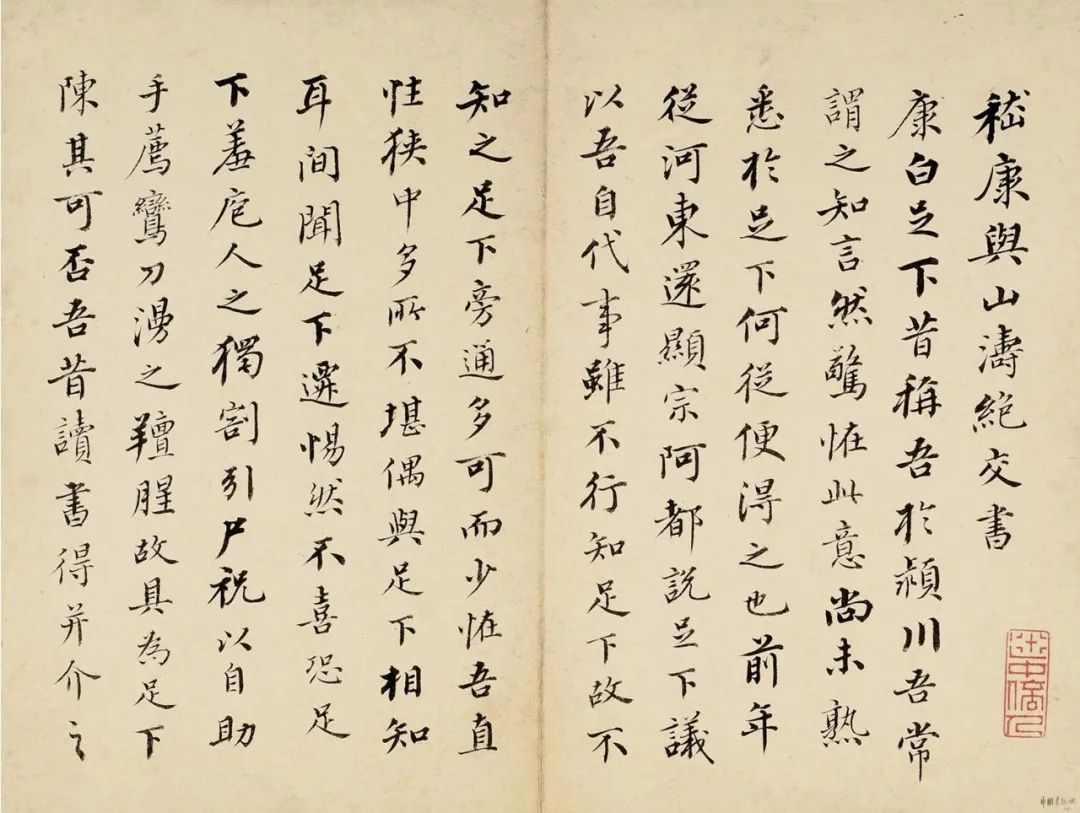 嵇康與山濤絶交書
康白足下昔稱吾於潁川吾常
謂之知言然驚恠此意尚未熟
悉於足下何從便得之也前年
從河東還顯宗阿都說足下議
以吾自代事雖不行知足下故不
知之足下旁通多可而少恠吾直
性狹中多所不堪偶與足下相知
耳間聞足下遷惕然不喜恐足
下羞庖人之獨割引尸祝以自助
手薦鸞刀漫之羶腥故具為足下
陳其可否吾昔讀書得并介之